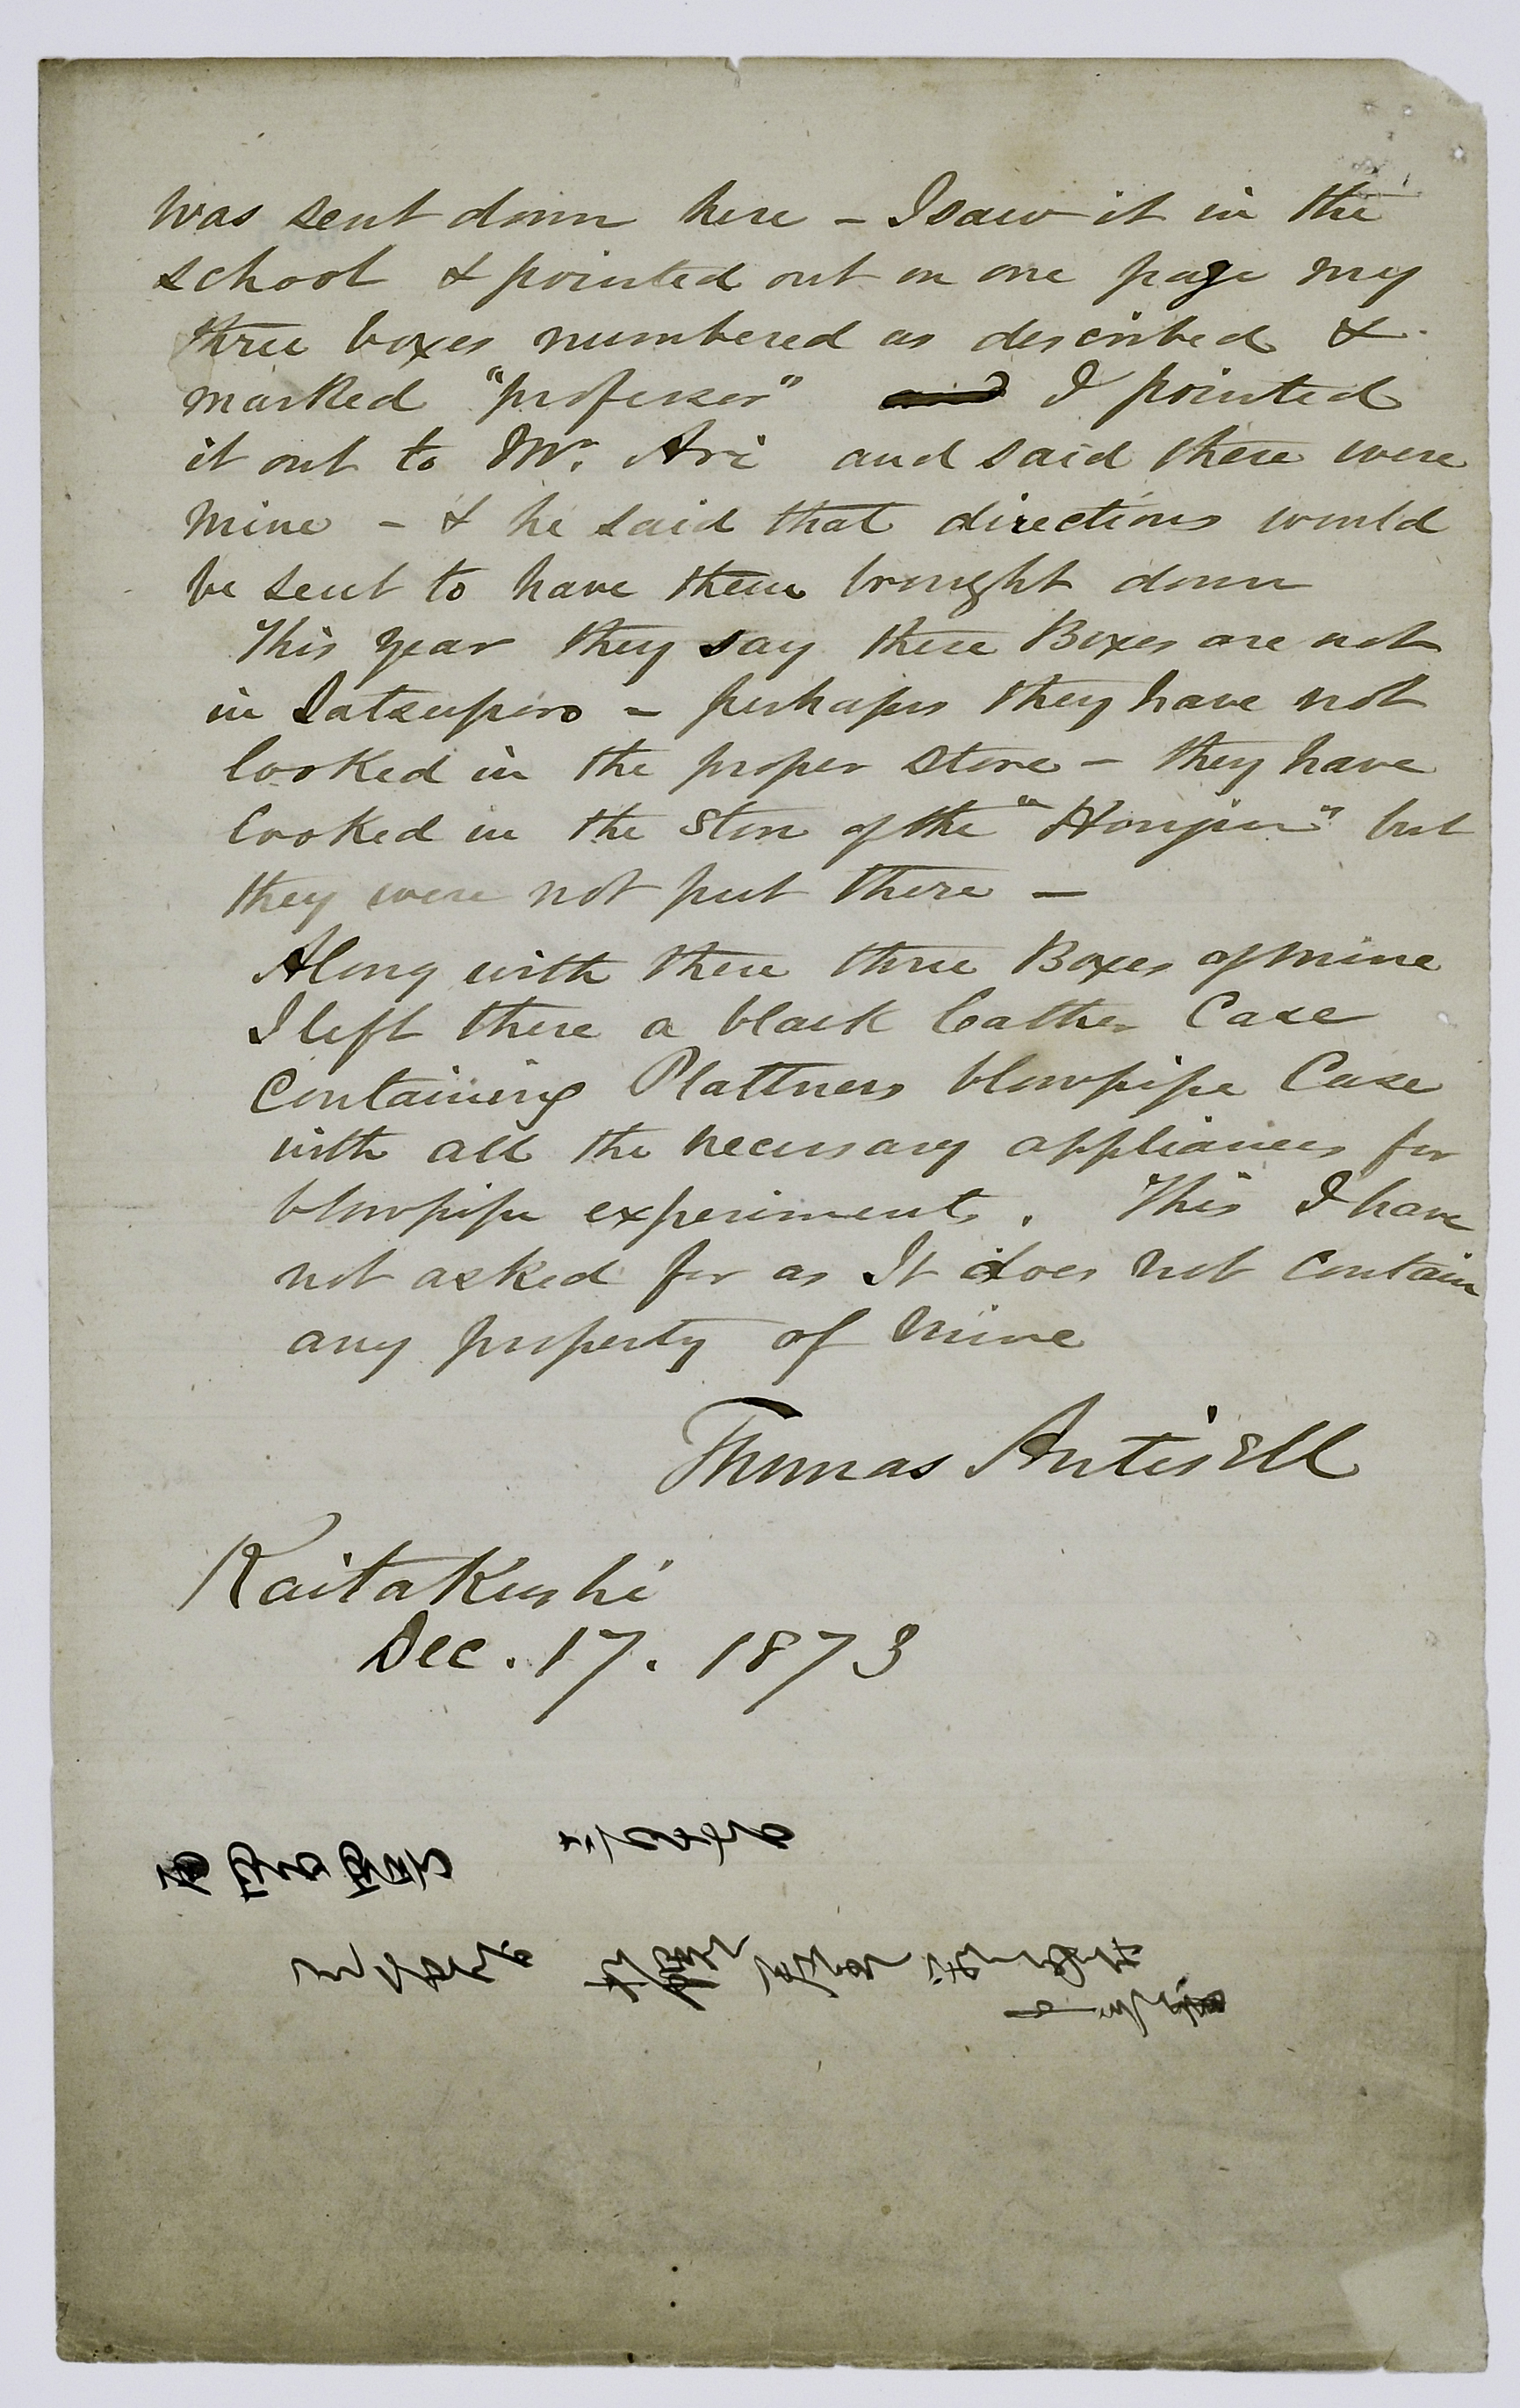 was sent down here – I saw it in the
school & pointed out on one page my
three boxes numbered as described &
marked "professor" and I pointed
it out to Mr. Ari and said these were
mine – & he said that directions would
be sent to have them brought down
This year they say these Boxes are not
in Satsuporo – perhaps they have not
looked in the proper store – they have
looked in the store of the "Honjin" but
they were not put there –
Along with these three Boxes of mine
I left there a black leather Case
Containing Plattners blowpipe Case
with all the necessary appliances for
blowpipe experiments. This I have
not asked for as It does not contain
any property of mine
Thomas Antisell
Kaitakushi
Dec. 17. 1873